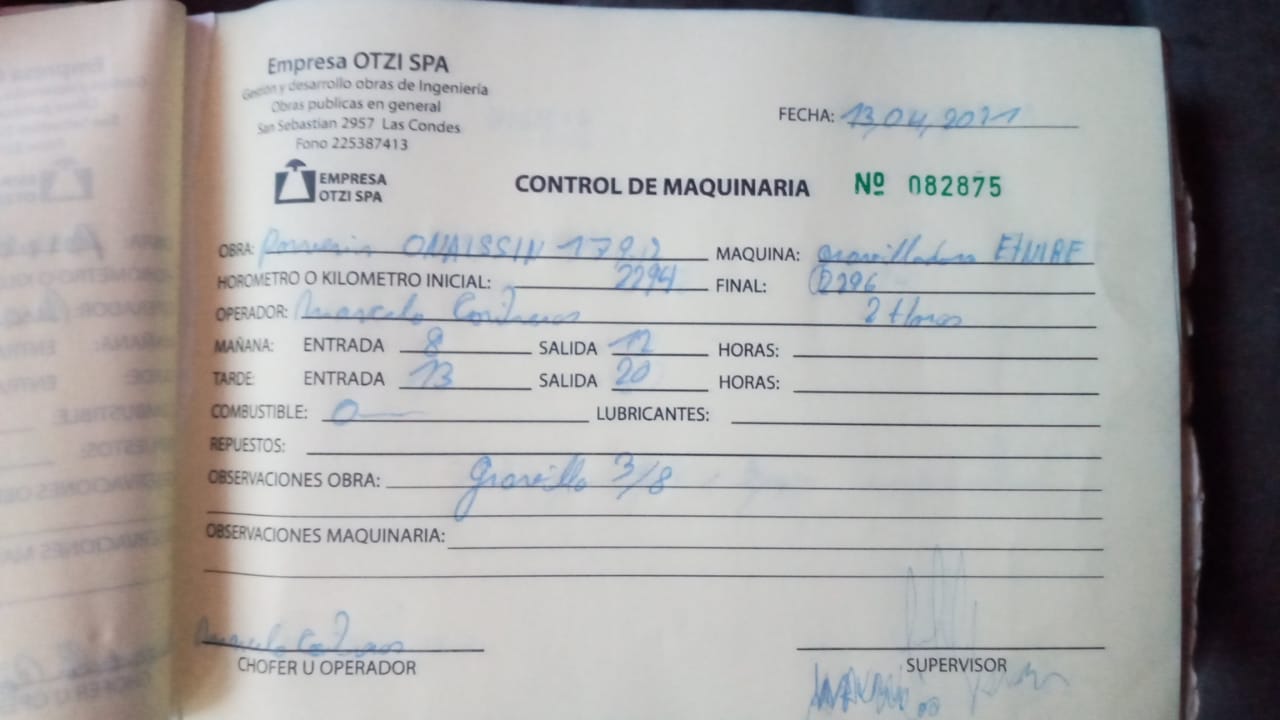 Empresa OTZI SPA
Gestion y desarrollo obras de Ingeniería
Obras publicas en general
San Sebastian 2957 Las Condes
Fono 225387413
FECHA: 13,04,2021
EMPRESA
OTZI SPA
CONTROL DE MAQUINARIA Nº 082875
OBRA: MAQUINA: Gravilladora
HOROMETRO O KILOMETRO INICIAL: 2294 FINAL: 2296
OPERADOR: Marcelo Contreras 2 Horas
MAÑANA: ENTRADA 8 SALIDA 12 HORAS:
TARDE: ENTRADA 13 SALIDA 20 HORAS:
COMBUSTIBLE: 0 LUBRICANTES:
REPUESTOS:
OBSERVACIONES OBRA: Gravilla 3/8
OBSERVACIONES MAQUINARIA:
Marcelo Contreras
CHOFER U OPERADOR
SUPERVISOR